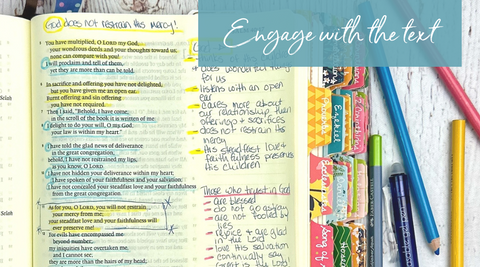 Engage with the text
God does not restrain His mercy!
You have multiplied, O LORD my God,
your wondrous deeds and your thoughts toward us;
none can compare with you!
I will proclaim and tell of them,
yet they are more than can be told.
In sacrifice and offering you have not delighted,
but you have given me an open ear.
Burnt offering and sin offering
you have not required.
Then I said, "Behold, I have come;
in the scroll of the book it is written of me:
I delight to do your will, O my God;
your law is within my heart."
I have told the glad news of deliverance
in the great congregation;
behold, I have not restrained my lips,
as you know, O LORD.
I have not hidden your deliverance within my heart;
I have spoken of your faithfulness and your salvation;
I have not concealed your steadfast love and your faithfulness
from the great congregation.
As for you, O LORD, you will not restrain
your mercy from me;
your steadfast love and your faithfulness will
ever preserve me!
For evils have encompassed me
beyond number;
my iniquities have overtaken me,
and I cannot see;
they are more than the hairs of my head;
Selah
Selah
- does wonderful
for us
- listens with an open
ear
- cares more about
our relationship than
offerings + sacrifices
- does not restrain His
mercy
- His steadfast love +
faithfulness preserves
His children
Those who trust in God
- are blessed
- do not go astray
- are not fooled by
lies
- rejoice + are glad
in the Lord
- love His salvation
- continually say
Great is the Lord
Ezekiel